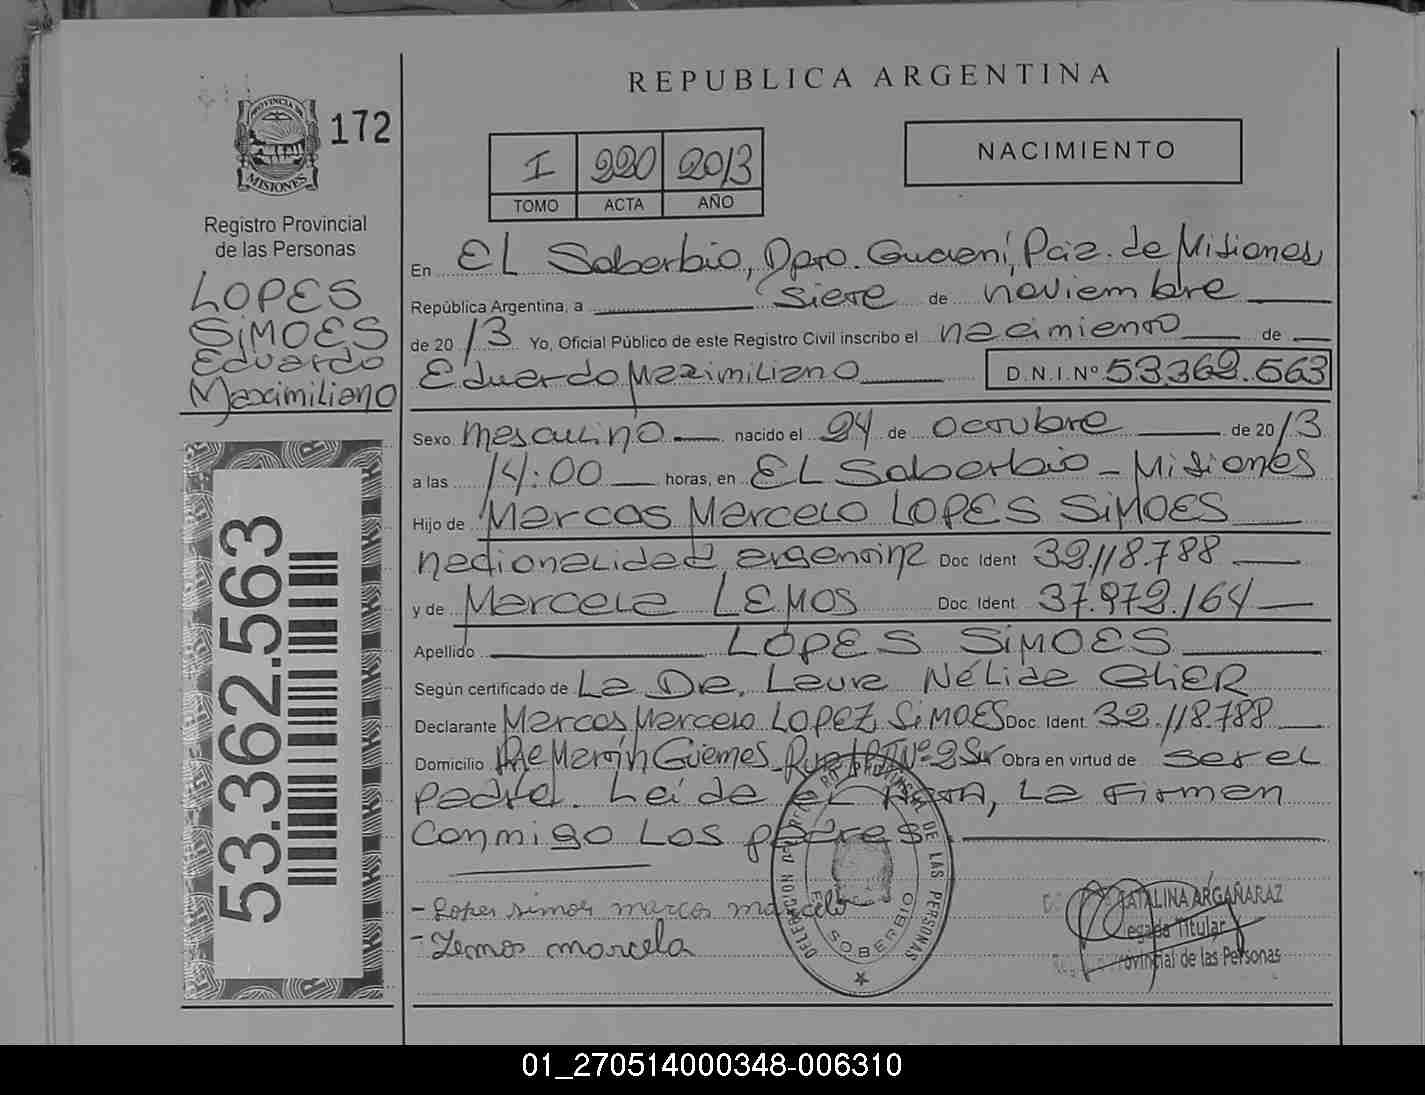 REPUBLICA ARGENTINA
PROVINCIA DE
MISIONES
172
Registro Provincial
de las Personas
LOPES
SiMOES
Eduardo
Maximiliano
53.362.563
I 220 2013
TOMO ACTA AÑO
NACIMIENTO
En EL Soberbio, Dpto. Guarani, Pcia. de Misiones
República Argentina, a siete de noviembre
de 2013 Yo, Oficial Público de este Registro Civil inscribo el nacimiento de
Eduardo Maximiliano D.N.I.Nº 53.362.563
Sexo masculino nacido el 24 de octubre de 2013
a las 14:00 horas, en EL Soberbio - Misiones
Hijo de Marcos Marcelo LOPES SiMOES
nacionalidad argentina Doc. Ident 32.118.788
y de Marcela LEMOS Doc. Ident. 37.972.164
Apellido LOPES SiMOES
Según certificado de La Dra. Laura Nélida GhiER
Declarante Marcos Marcelo LOPEZ SiMOES Doc. Ident. 32.118.788
Domicilio Martín Güemes Ruta Nº 2 Obra en virtud de ser el
padre. Leída el Acta, La firman
conmigo Los padres.
- Lopes simoes marcos marcelo
- Lemos marcela
DELEGACION DEL REGISTRO PROVINCIAL DE LAS PERSONAS
EL SOBERBIO
CATALINA ARGAÑARAZ
Delegada Titular
Registro Provincial de las Personas
01_270514000348-006310